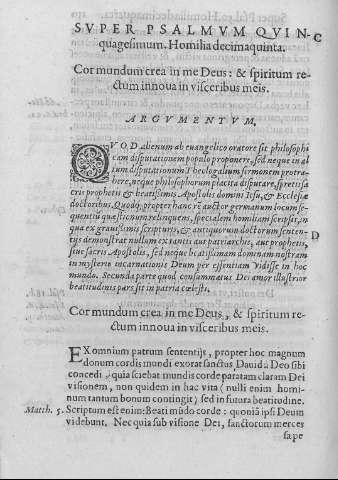 SVPER PSALMVM QVIN-
quagesimum. Homilia decimaquinta.
C
Cor mundum crea in me Deus: & spiritum re-
ctum innoua in visceribus meis.
ARGVMENTVM.
QVOD alienum ab euangelico oratore sit philosophi
cam disputationem populo proponere, sed neque in al
tum disputationum Theologalium sermonem protra-
here, neque philosophorum placita disputare, spretis sa
cris prophetis & beatissimis Apostolis domini Iesu, & Ecclesiæ
doctoribus. Quod propter hanc rē auctor germanum locum se-
quentiū quæstionum relinquens, specialem homiliam scripsit, in
qua ex grauissimis scripturis, & antiquorum doctorum senten-
D
tijs demonstrat nullum ex tantis aut patriarchis, aut prophetis,
siue sacris Apostolis, sed neque beatissimam dominam nostram
in mysterio incarnationis Deum per essentiam vidisse in hoc
mundo. Secunda parte quod consummatus Dei amor illustrior
beatitudinis pars sit in patria cælesti.
Cor mundum crea in me Deus, & spiritum re-
ctum innoua in visceribus meis.
EX omnium patrum sententijs, propter hoc magnum
donum cordis mundi exorat sanctus Dauid à Deo sibi
concedi, quia sciebat mundis corde paratam claram Dei
visionem, non quidem in hac vita (nulli enim homi-
num tantum bonum contingit) sed in futura beatitudine.
Matth. 5. Scriptum est enim: Beati mūdo corde: quoniā ipsi Deum
videbunt. Nec quia sub visione Dei, sanctorum merces
sæpe